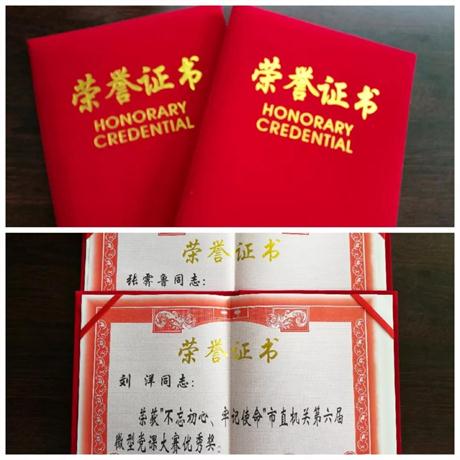 荣誉证书
HONORARY
CREDENTIAL
荣誉证书
HONORARY
CREDENTIAL
荣誉证书
张霁鲁同志：
荣誉证书
刘 洋同志：
荣获"不忘初心、牢记使命"市直机关第六届
微型党课大赛优秀奖。